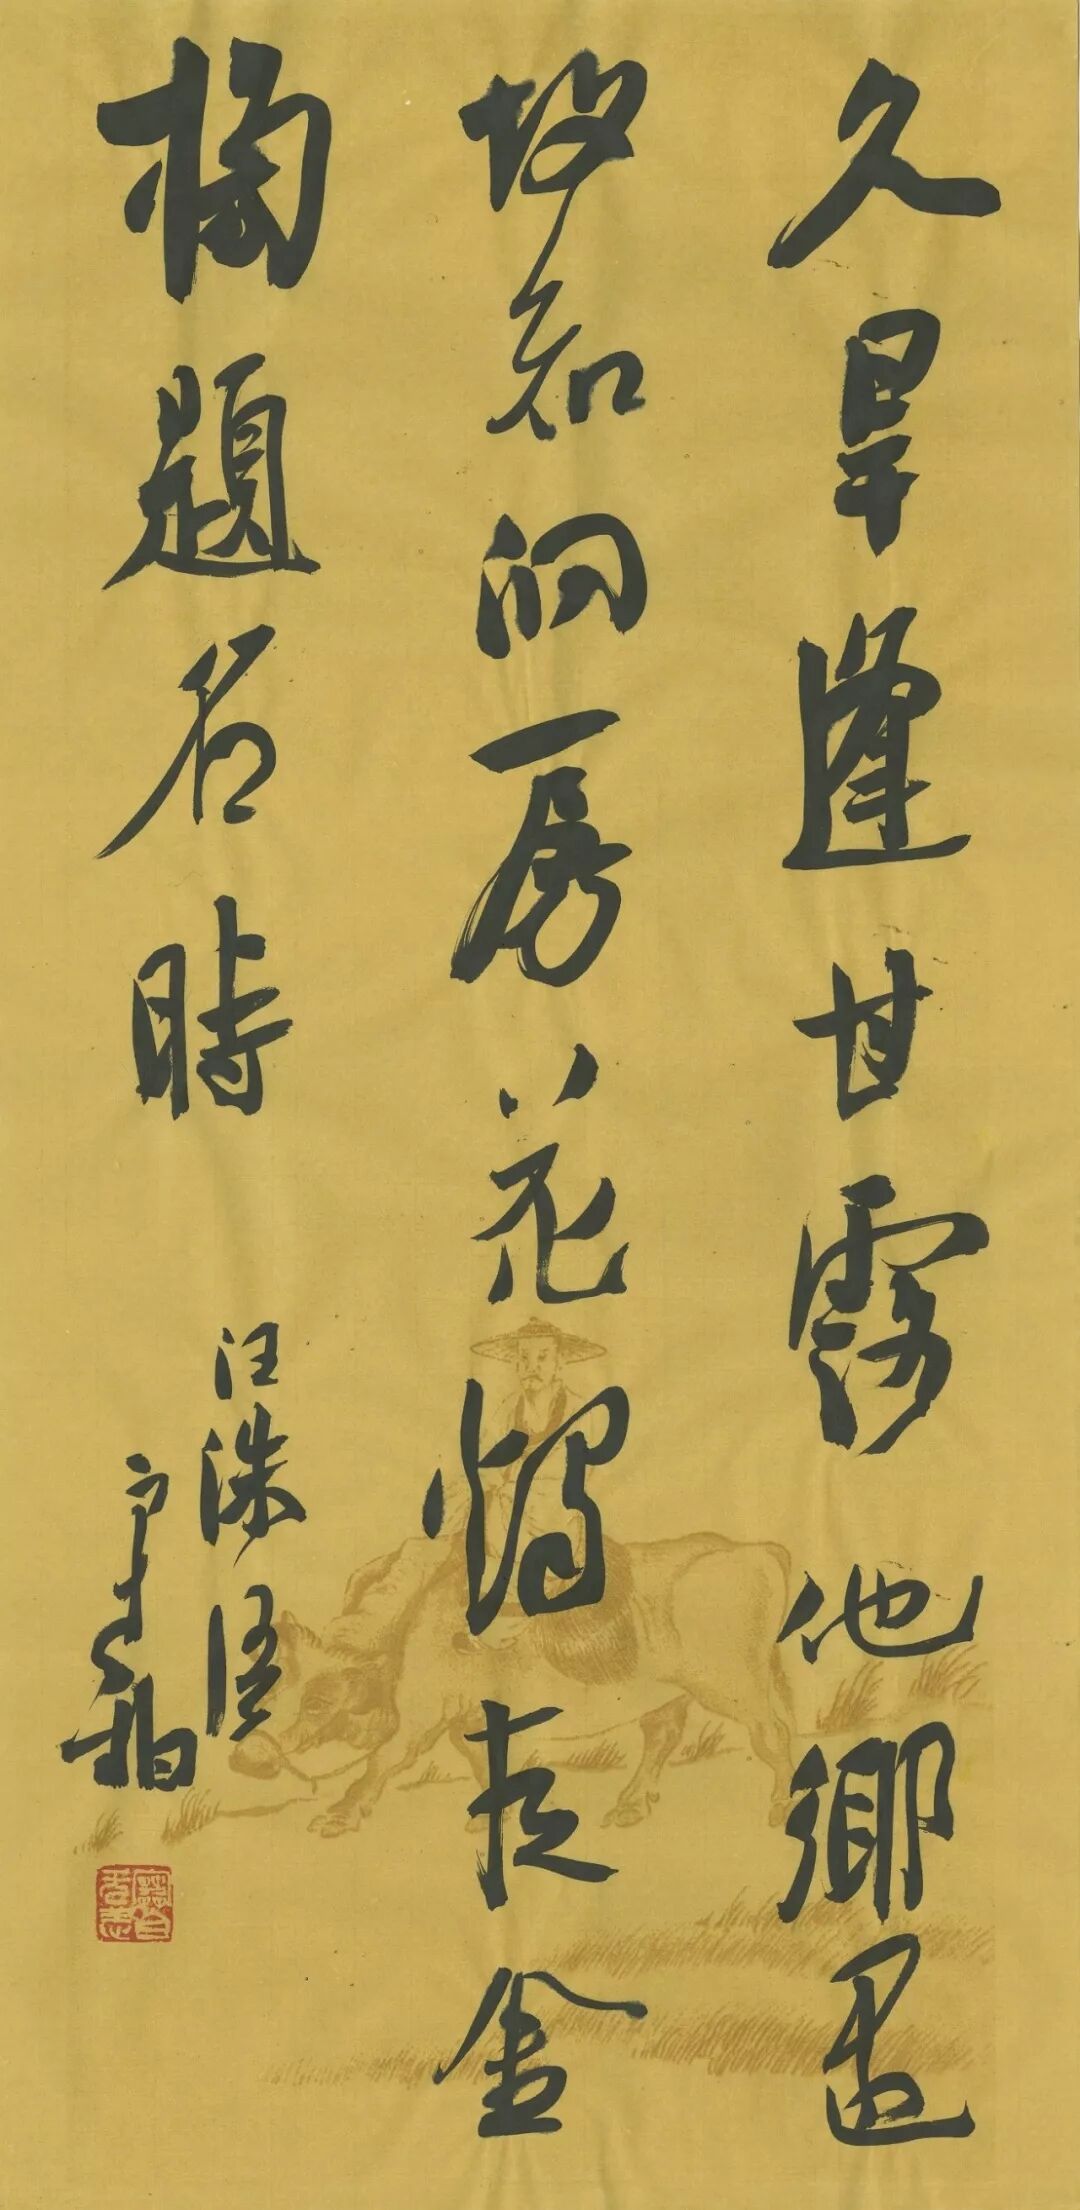 久旱逢甘露他鄉遇
故知洞房花燭夜金
榜題名時
汪洙語